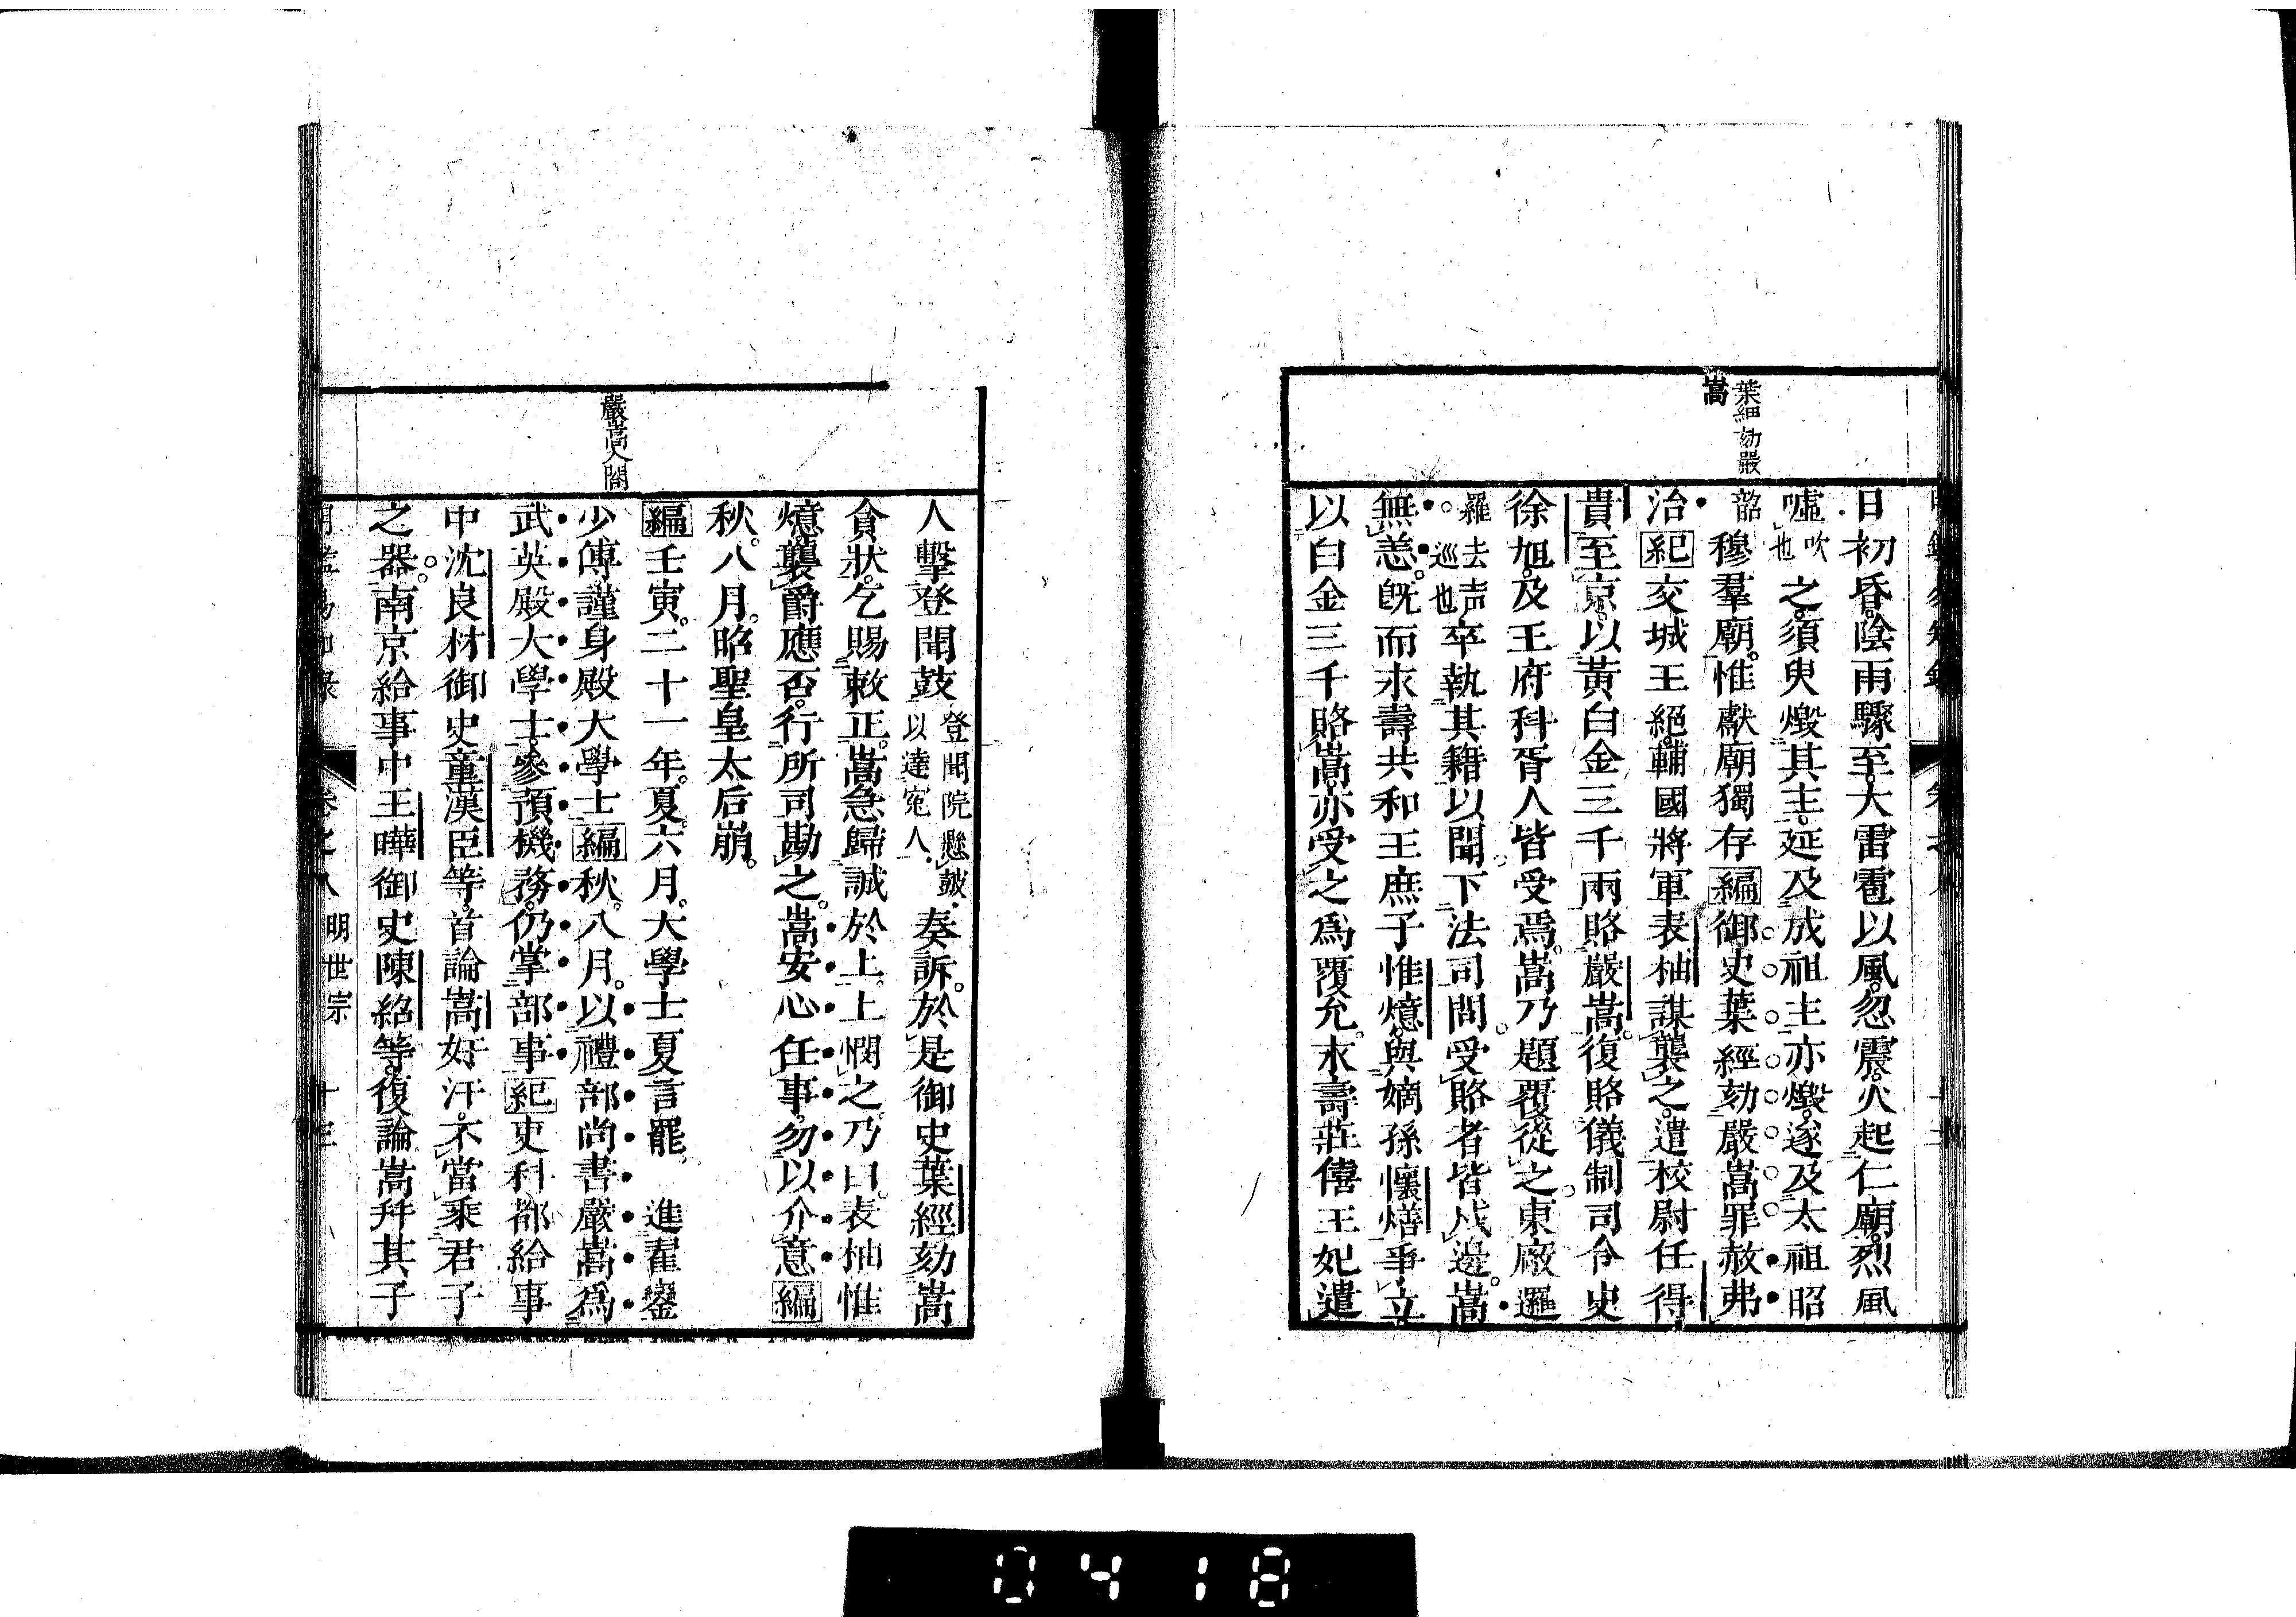 葉經劾嚴
嵩
日初昏。陰雨驟至。大雷雹以風。忽震。火起仁廟。烈風
噓吹也之。須臾燬其主。延及成祖主亦燬。遂及太祖昭
穆羣廟。惟獻廟獨存編御史葉經劾嚴嵩罪赦弗
治紀交城王絕。輔國將軍表柚謀襲之。遣校尉任得
貴至京。以黃白金三千兩賂嚴嵩。復賂儀制司令史
徐旭。及王府科胥人皆受焉。嵩乃題覆從之。東廠邏
邏去声巡也卒執其籍以聞。下法司問。受賂者皆戍邊。嵩
無恙。旣而永壽共和王庶子惟燱。與嫡孫懷熺爭立。
以白金三千賂嵩。亦受之爲覆允。永壽莊僖王妃遣
嚴嵩入閣
人擊登聞鼓登聞院懸鼓以達寃人奏訴。於是御史葉經劾嵩
貪狀。乞賜敕正。嵩急歸誠於上。上憫之。乃曰。表柚惟
燱。襲爵應否。行所司勘之。嵩安心任事。勿以介意編
秋。八月。昭聖皇太后崩。
編壬寅。二十一年。夏。六月。大學士夏言罷 進翟鑾
少傅謹身殿大學士編秋。八月。以禮部尚書嚴嵩爲
武英殿大學士。參預機務。仍掌部事紀吏科都給事
中沈良材御史童漢臣等。首論嵩奸汙。不當乘君子
之器。南京給事中王曄御史陳紹等。復論嵩幷其子
卷之八 明世宗
0418